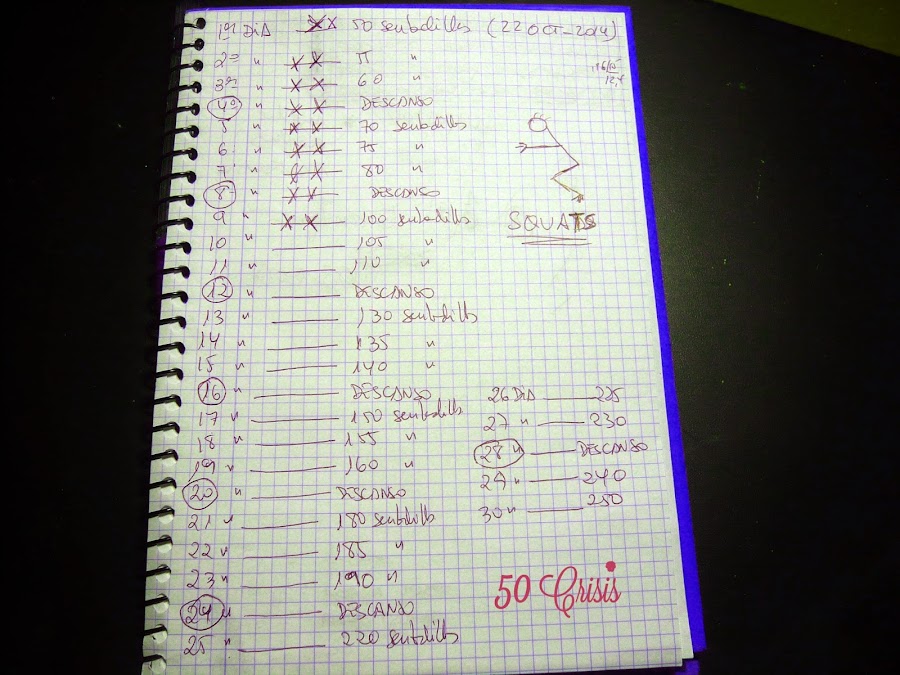 1er DÍA XX 50 sentadillas (22 OCT-2014)
2º " XX "
3er " XX 60 "
4º " XX DESCANSO
5 " XX 70 sentadillas
6 " XX 75 "
7 " XX 80 "
8 " XX DESCANSO
9 " XX 100 sentadillas
10 " 105 "
11 " 110 "
12 " DESCANSO
13 " 130 sentadillas
14 " 135 "
15 " 140 "
16 " DESCANSO
17 " 150 sentadillas
18 " 155 "
19 " 160 "
20 " DESCANSO
21 " 180 sentadillas
22 " 185 "
23 " 190 "
24 " DESCANSO
25 " 220 sentadillas
SQUATS
26 DÍA 225
27 " 230
28 " DESCANSO
29 " 240
30 " 250
50 Crisis